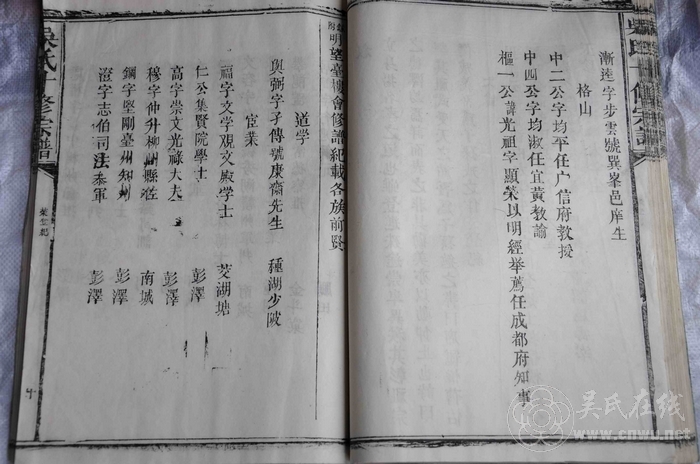 漸逵字步雲號巽峯邑庠生
格山
中二公字均平任广信府教授
中四公字均淑任宜黄教諭
樞一公諱光祖字顯榮以明經举薦任成都府知事
明望臺樓會修譜紀載各族前賢
道学
與弼字子傳號康齋先生 種湖少陂
宦業
福字文学觀文殿学士 茭湖塘
仁公集賢院学士 彭澤
高字崇文光祿大夫 彭澤
穆字仲升柳州縣佐 南城
鋼字堅剛臺州知州 彭澤
澄字志伯司法叅軍 彭澤
吳氏十修宗譜
吴氏在线
www.cnwu.net